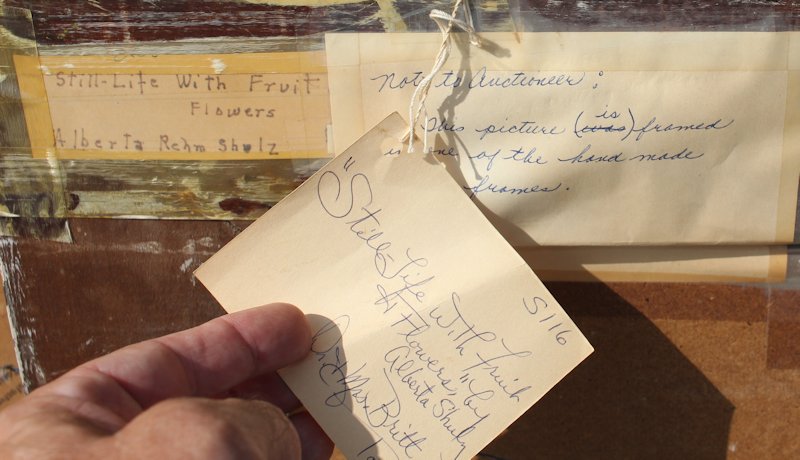 Still-Life With Fruit
Flowers
Alberta Rehm Shulz
Note to Auctioneer:
is
This picture (was) framed
is one of the hand made
frames.
S116
"Still-Life With Fruit
& Flowers" by
Alberta Shulz
Dr & Mrs. Britt